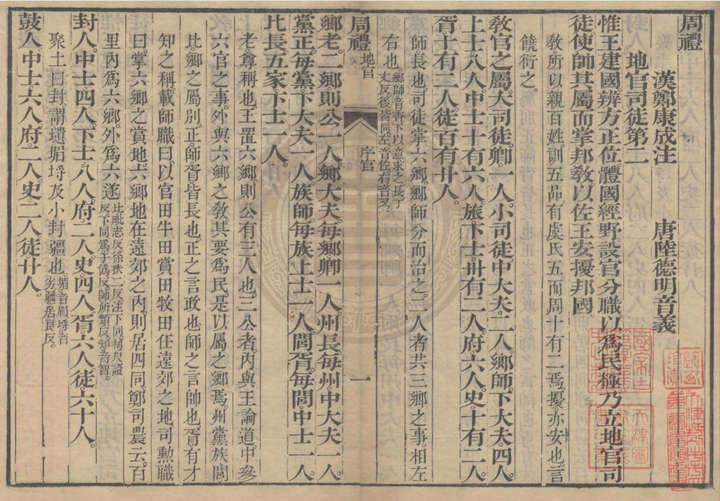 周禮
漢鄭康成注 唐陸德明音義
地官司徒第二
惟王建國辨方正位體國經野設官分職以爲民極乃立地官司
徒使帥其屬而掌邦敎以佐王安擾邦國
敎所以親百姓訓五品有虞氏五而周十有二焉擾亦安也言
饒衍之
敎官之屬大司徒卿一人小司徒中大夫二人鄉師下大夫四人
上士八人中士十有六人旅下士卅有二人府六人史十有二人
胥十有二人徒百有廿人
師長也司徒掌六鄉鄉師分而治之二人者共三鄉之事相左
右也
周禮 地官 序官 一
鄉老二鄉則公一人鄉大夫每鄉卿一人州長每州中大夫一人
黨正每黨下大夫一人族師每族上士一人閭胥每閭中士一人
比長五家下士一人
老尊稱也王置六鄉則公有三人也三公者內與王論道中參
六官之事外與六鄉之敎其要爲民是以屬之鄉焉州黨族閭
比鄉之屬別正師胥皆長也正之言政也師之言帥也胥有才
知之稱載師職曰以官田牛田賞田牧田任遠郊之地司勳職
曰掌六鄉之賞地六鄉地在遠郊之內則居四同鄭司農云百
里內爲六鄉外爲六遂
封人中士四人下士八人府二人史四人胥六人徒六十人
聚土曰封謂壝堳埒及小封疆也
鼓人中士六人府二人史二人徒廿人